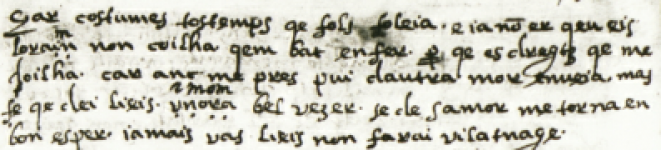 Car costumes tostemps qe fols foleia. e ia nō er qeu eis
lo raim non coilha qem bat en fer. ꝑ qe es dregtz qe me
doilha. car anc me pres pui dautra mor enueia. mas
fe qe dei lieis. ynora bel vezer. se de samor me torna en
bon esper. iamais vas lieis non farai vilatnage.